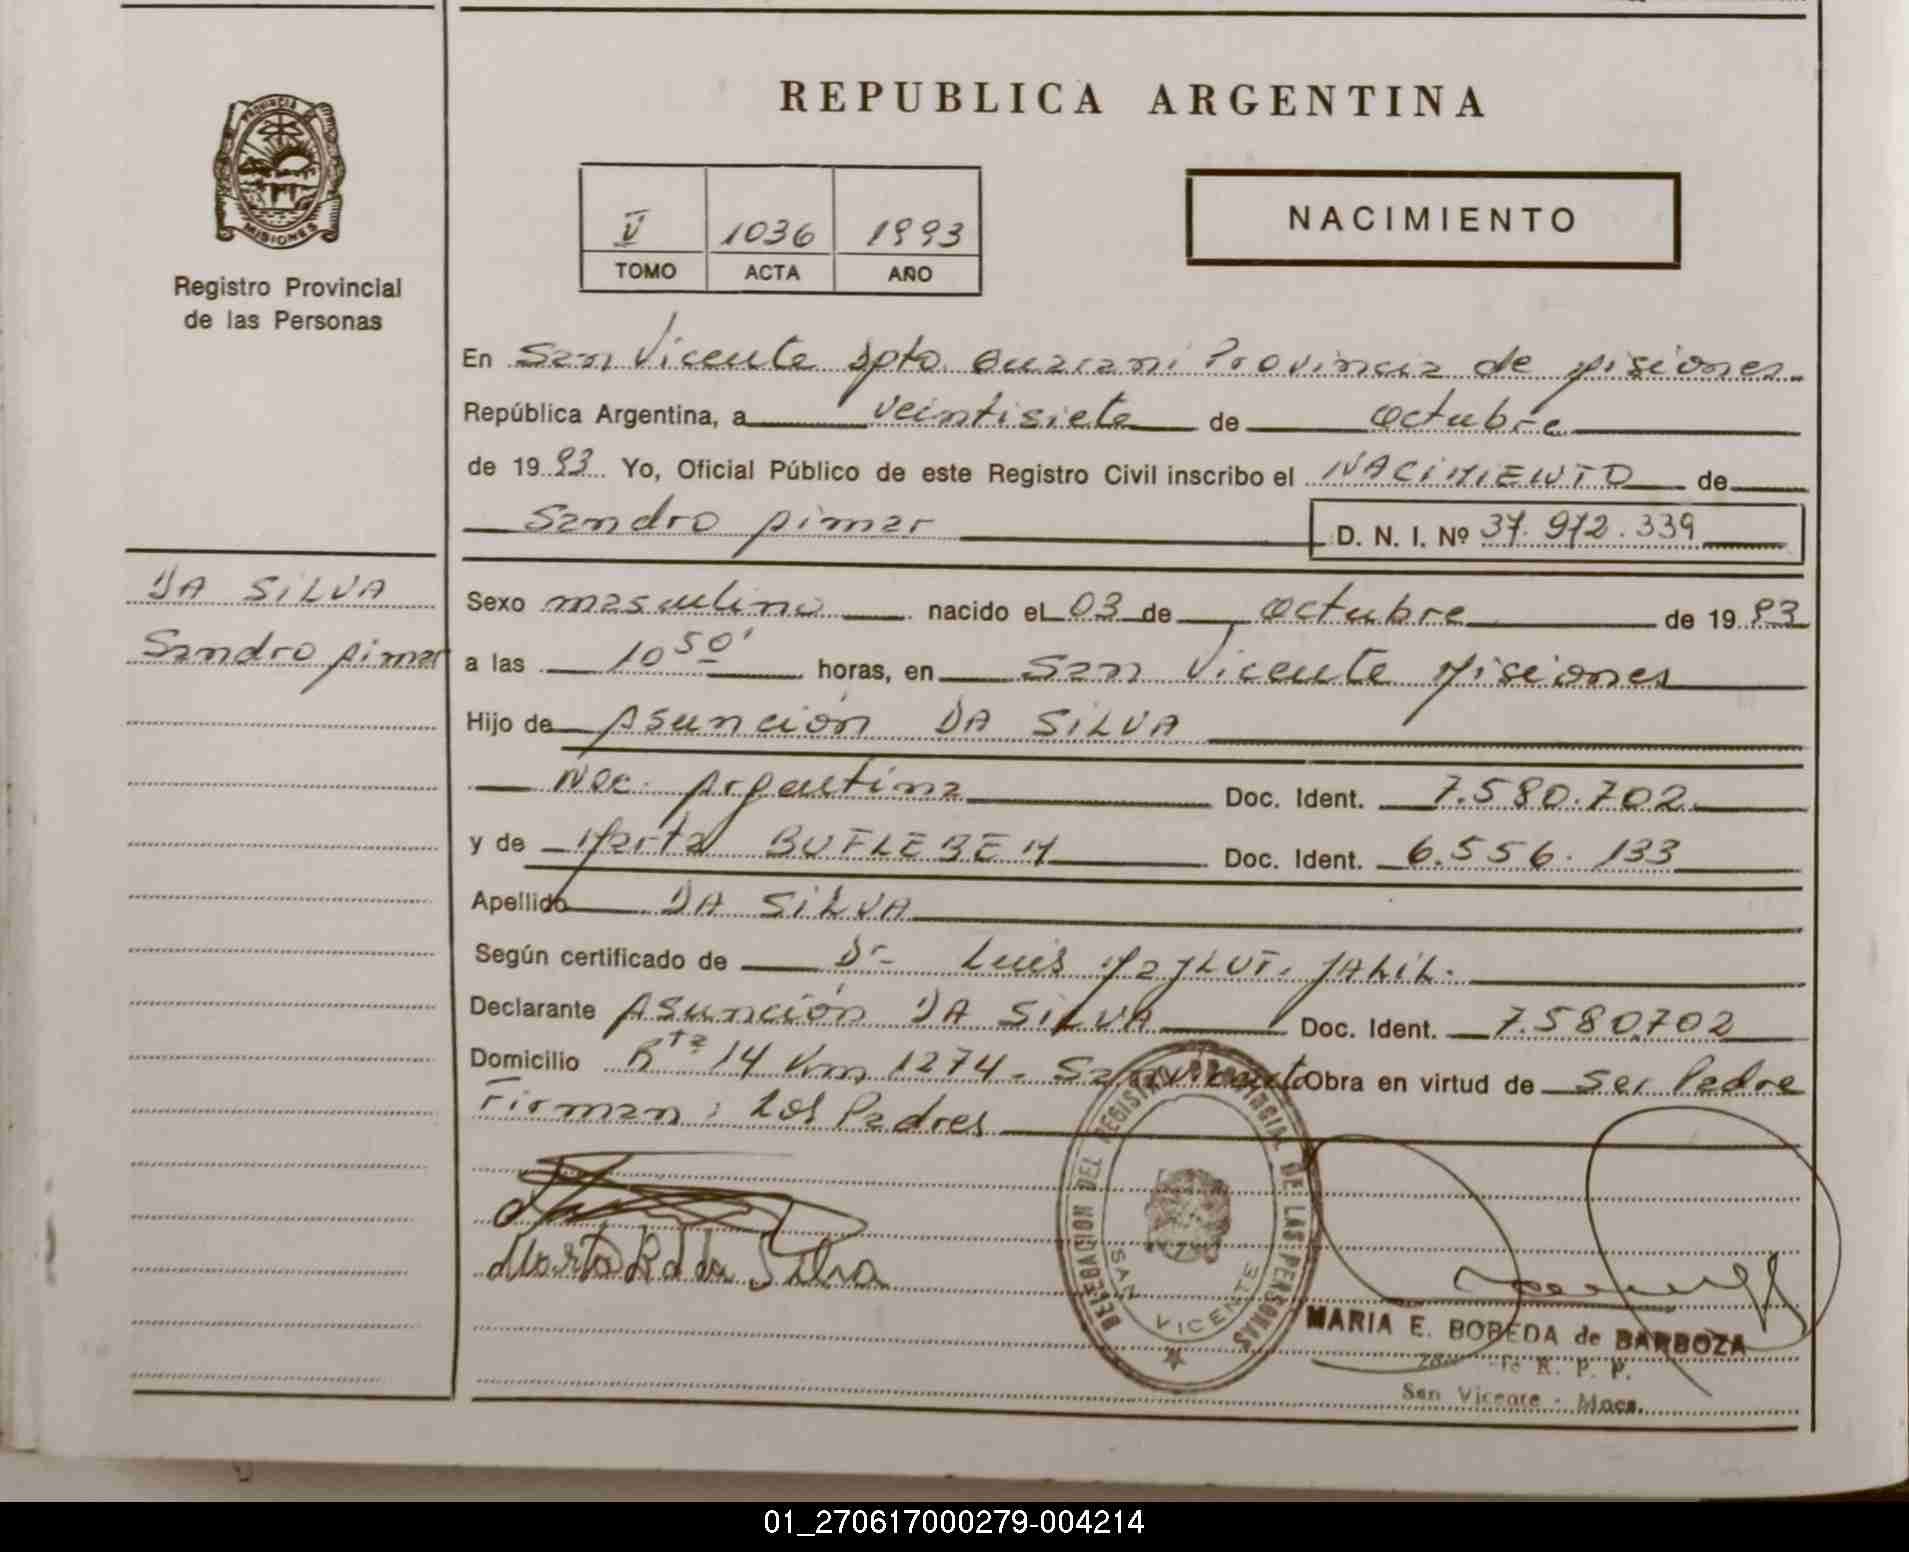 REPUBLICA ARGENTINA
PROVINCIA DE
MISIONES
Registro Provincial
de las Personas
V 1036 1993
TOMO ACTA AÑO
NACIMIENTO
En San Vicente Dpto. Guaraní Provincia de Misiones
República Argentina, a veintisiete de octubre
de 1993 Yo, Oficial Público de este Registro Civil inscribo el NACIMIENTO de
Sandro Aimar D. N. I. Nº 37.972.339
DA SILVA
Sandro Aimar
Sexo masculino nacido el 03 de octubre de 1993
a las 10 50' horas, en San Vicente Misiones
Hijo de Asunción DA SILVA
Nac. Argentina Doc. Ident. 7.580.702
y de Marta BUFLEBEM Doc. Ident. 6.556.133
Apellido DA SILVA
Según certificado de Dr Luis JALIL.
Declarante Asunción DA SILVA Doc. Ident. 7.580702
Domicilio Rta 14 Km 1274 - San Vicente Obra en virtud de ser Padre
Firman: Los Padres
Marta B da Silva
DELEGACION DEL REGISTRO PROVINCIAL DE LAS PERSONAS
SAN VICENTE
MARIA E. BOBEDA de BARBOZA
R. P. P.
San Vicente - Mnes.
01_270617000279-004214